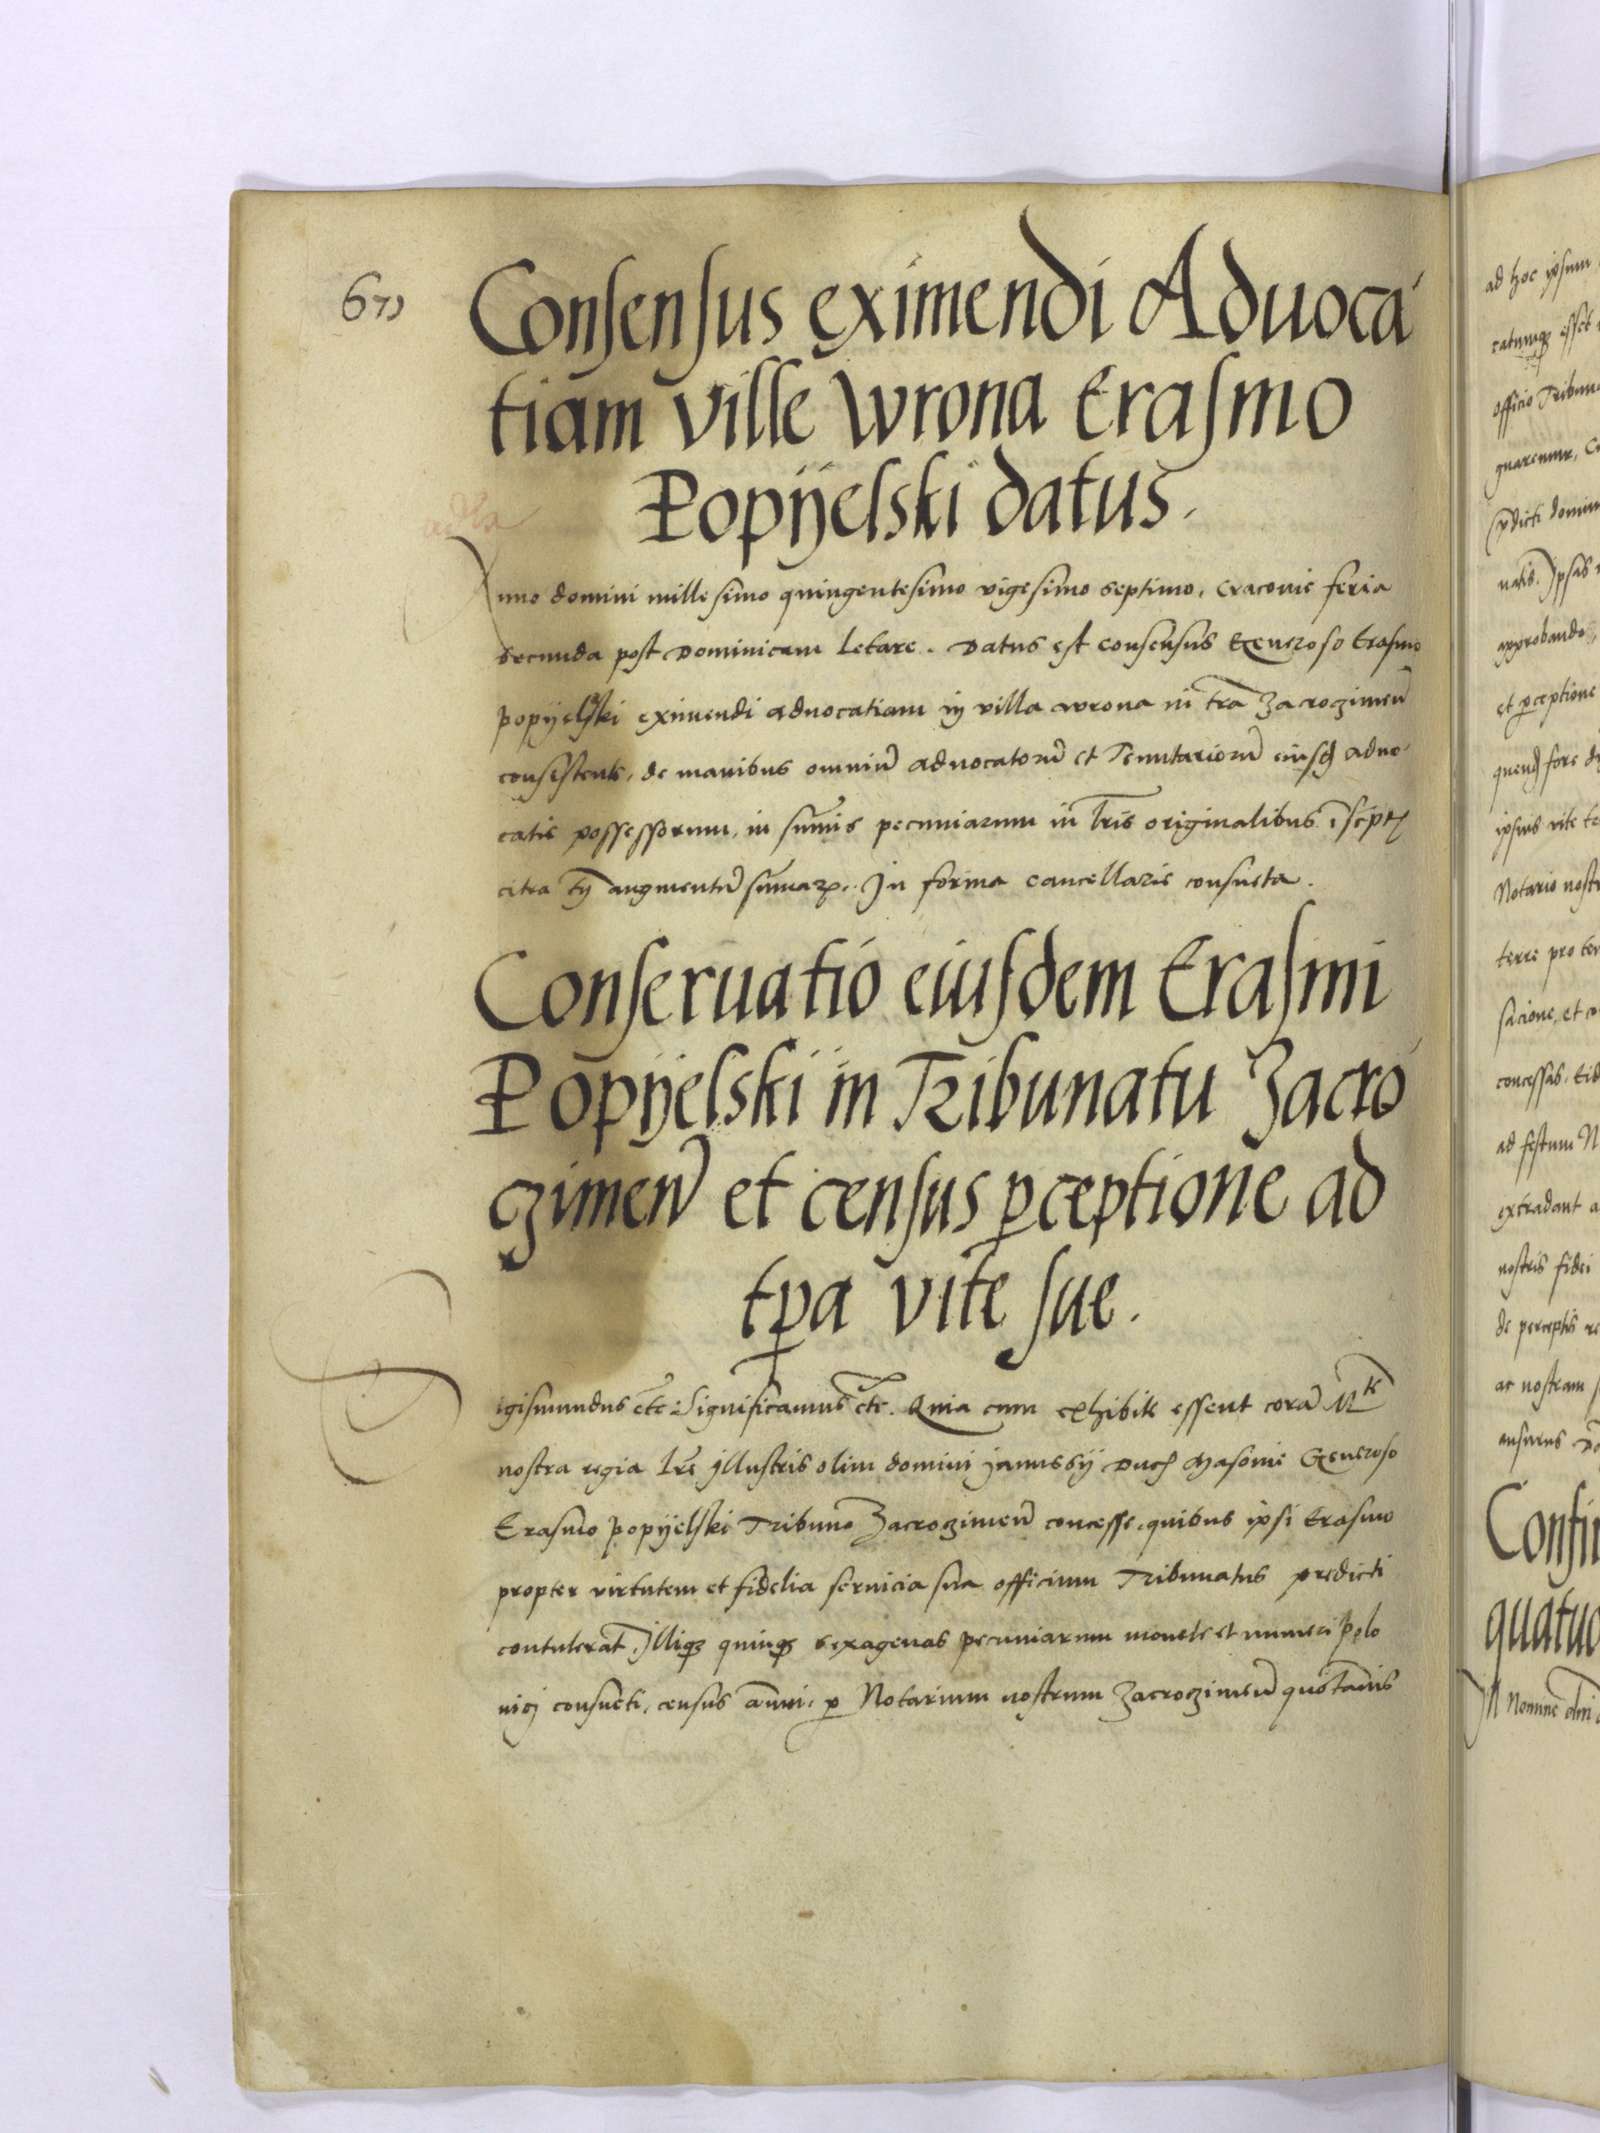 67
Consensus eximendi Aduoca
tiam ville Wrona Erasmo
Popijelski datus.
Anno domini millesimo quingentesimo vigesimo septimo, Cracovie feria
secunda post Dominicam Letare. Datus est consensus Generoso Erasmo
popijelski eximendi aduocatiam in villa wrona in tra Zacrozimen
consistente, de manibus omniu aduocatoru et Tenutarioru eiusd aduo
catie possessorum, in summis pecuniarum in lris originalibus
citra tn augmentu summarum. In forma cancellarie consueta.
Conseruatio eiusdem Erasmi
Popijelski in Tribunatu Zacro
czimen et census pceptione ad
tpa vite sue.
igismundus etc Significamus etc. Quia cum exhibite essent cora Mte
nostra regia lre Illustris olim domini Janussij Ducis Masouie Generoso
Erasmo popijelski Tribuno Zacrozimen concesse, quibus ipsi Erasmo
propter virtutem et fidelia seruicia sua officium Tribunatus predicti
contulerat. Illiq quinq sexagenas pecuniarum monete et numeri polo
nici consueti, census annui, p Notarium nostrum Zacrozimen quotannis
ad hoc ipsum
esset
officio
dicti
Ipsas
approbando
et pceptione
fore
ipsius vite
Notario
terre pro
et
concessas.
ad festum
extradant
nostris fidei
de perceptis
ac nostram
Confir
quatuo
In Nomine dni